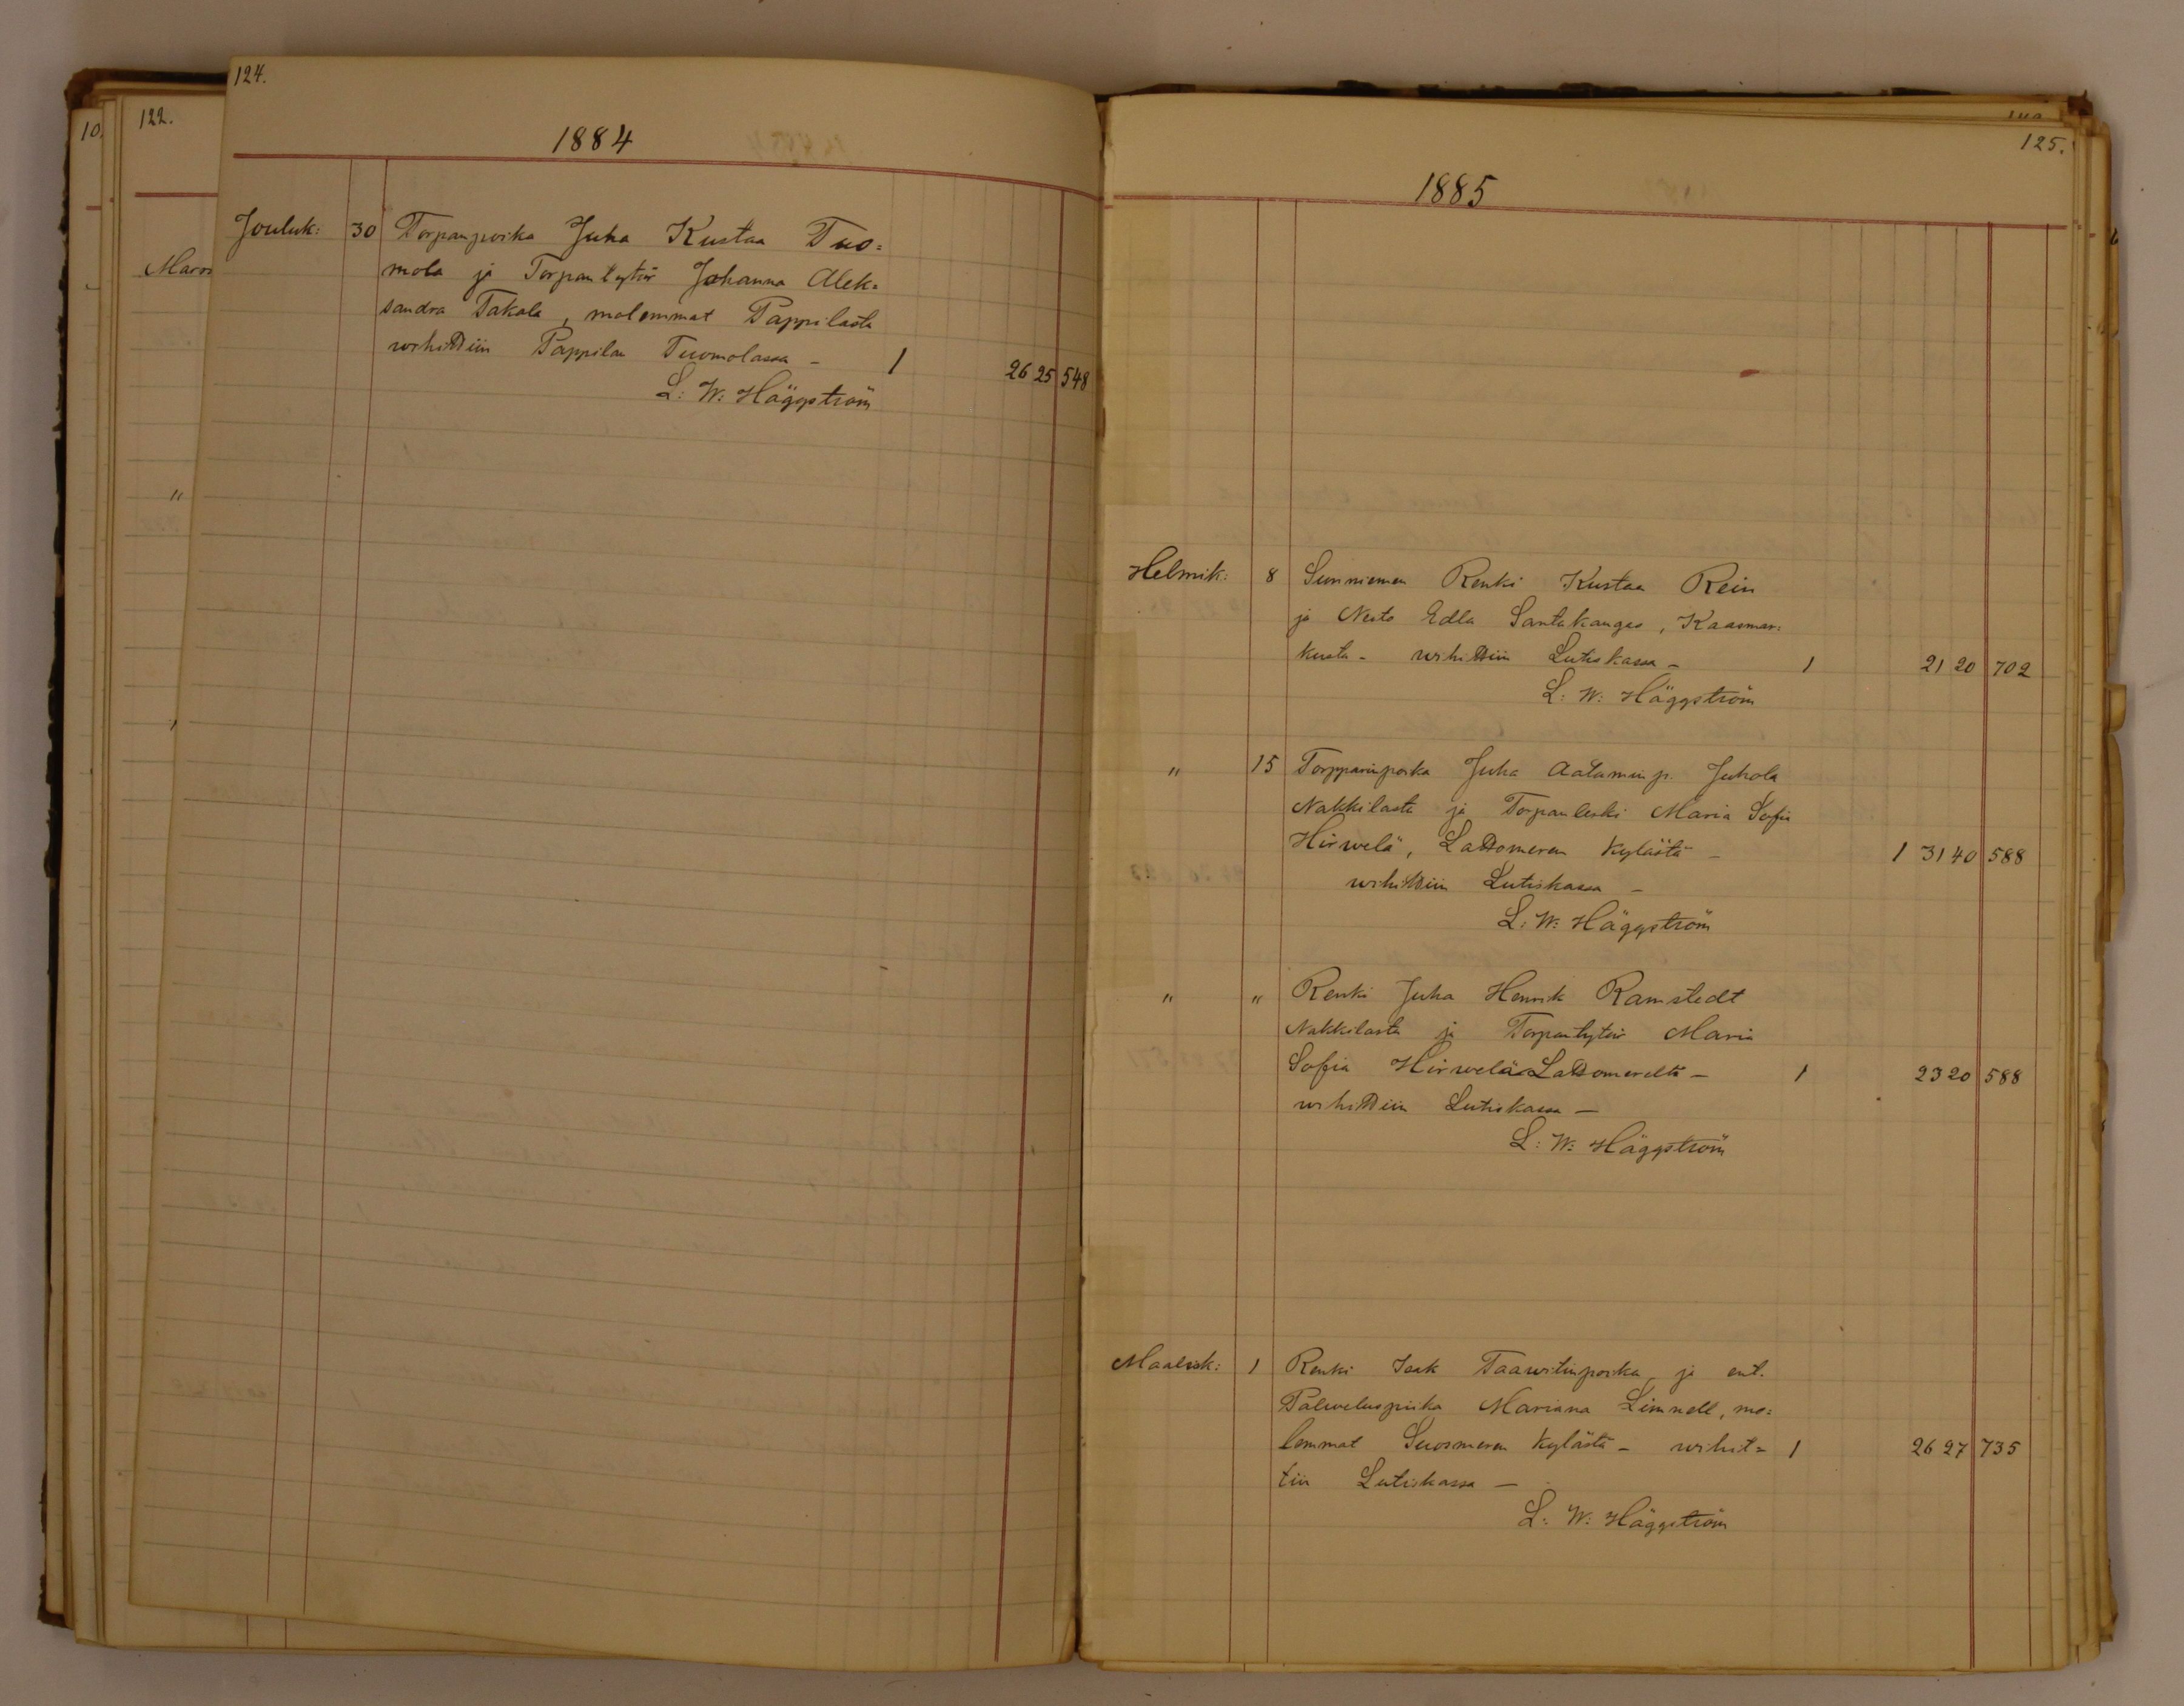 124.
1884
Jouluk: 30 Torpanpoika Juha Kustaa Tuo=
mola ja Torpantytär Johanna Alek=
sandra Takala, molemmat Pappilasta
wihittiin Pappilan Tuomolassa – 1 26 25 548
L: W: Häggström
10.
122.
"
125.
1885
Helmik: 8 Sunniemen Renki Kustaa Rein
ja Neito Edla Santakangas, Kaasmar=
kusta – wihittiin Lutiskassa – 1 21 20 702
L: W: Häggström
" 15 Torpparinpoika Juha Aatamin p. Juhola
Nakkilasta ja Torpanleski Maria Sofia
Hirwelä, Lattomeren kylästä – 1 31 40 588
wihittiin Lutiskassa –
L: W: Häggström
" " Renki Juha Henrik Ramstedt
Nakkilasta ja Torpantytär Maria
Sofia Hirwelä Lattomerelta – 1 23 20 588
wihittiin Lutiskassa –
L: W: Häggström
Maalisk: 1 Renki Isak Taawitinpoika ja ent.
Palweluspiika Mariana Limnell, mo=
lemmat Suosmeren kylästä – wihit= 1 26 27 735
tiin Lutiskassa –
L: W: Häggström